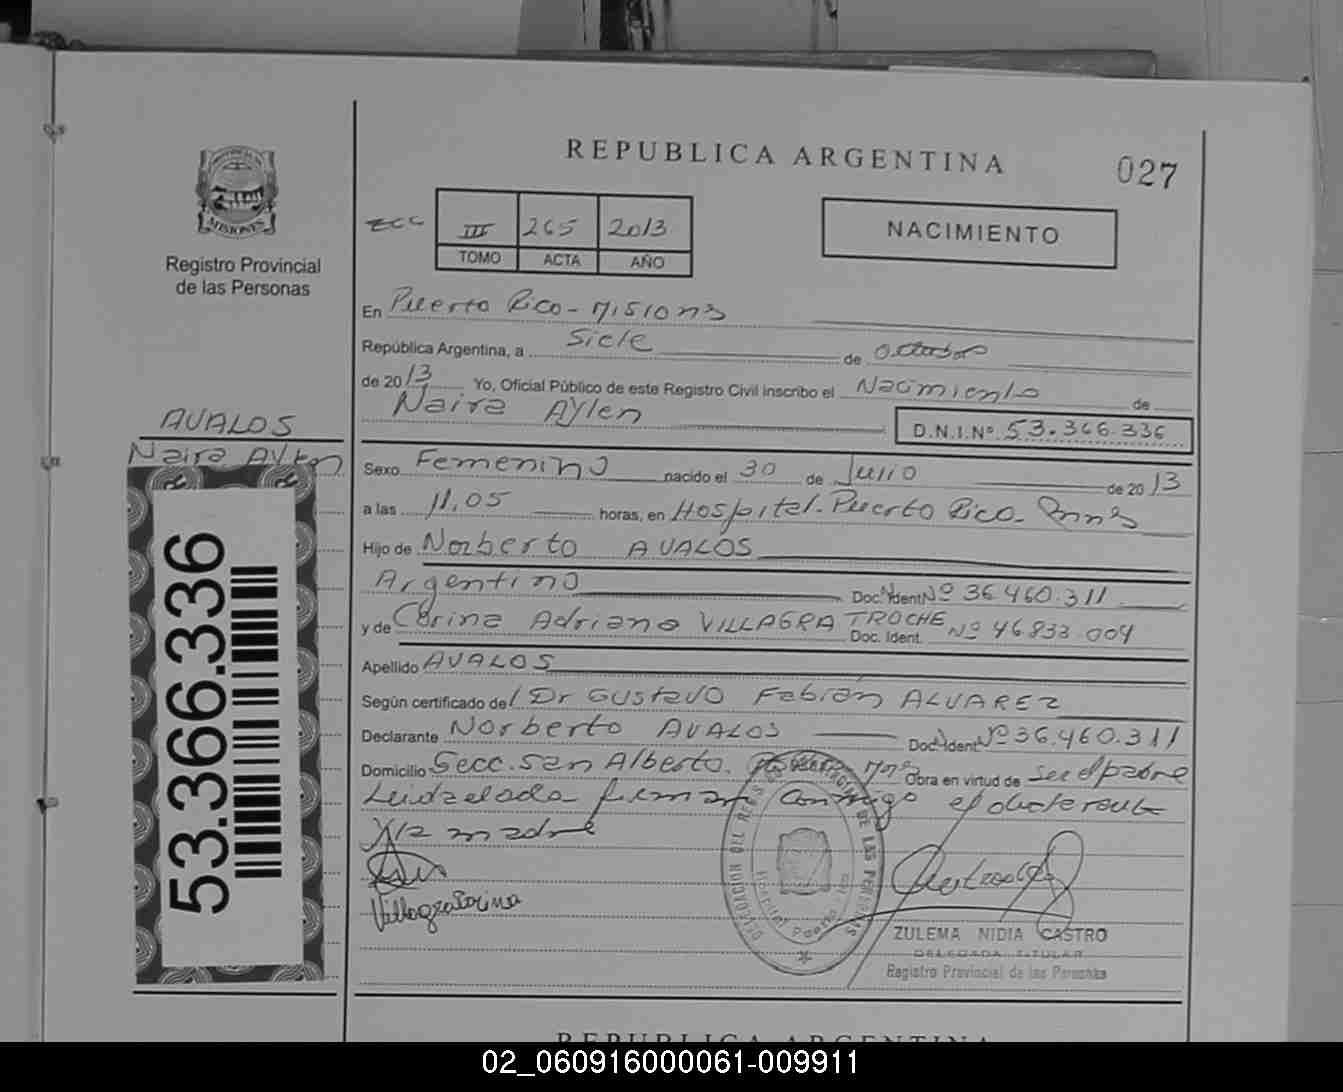 REPUBLICA ARGENTINA
027
MISIONES
Registro Provincial
de las Personas
III 265 2013
TOMO ACTA AÑO
NACIMIENTO
En Puerto Rico - Misiones
República Argentina, a Siete de Octubre
de 2013 Yo, Oficial Público de este Registro Civil inscribo el Nacimiento de
Naira Aylen
D.N.I.Nº 53.366.336
AVALOS
Naira Aylen
53.366.336
Sexo Femenino nacido el 30 de Julio de 2013
a las 11,05 horas, en Hospital. Puerto Rico. Mnes
Hijo de Norberto AVALOS
Argentino Doc. Ident Nº 36.460.311
y de Corina Adriana VILLAGRA TROCHE Doc. Ident. Nº 46.833.004
Apellido AVALOS
Según certificado del Dr Gustavo Fabián ALVAREZ
Declarante Norberto AVALOS Doc. Ident Nº 36.460.311
Domicilio Secc. San Alberto. Mnes Obra en virtud de ser el padre
Leida el acta firman conmigo el declarante
y la madre
Villagra Corina
DELEGACION DEL REGISTRO PROVINCIAL DE LAS PERSONAS
Hospital Puerto Rico
ZULEMA NIDIA CASTRO
DELEGADA TITULAR
Registro Provincial de las Personas
REPUBLICA ARGENTINA
02_060916000061-009911